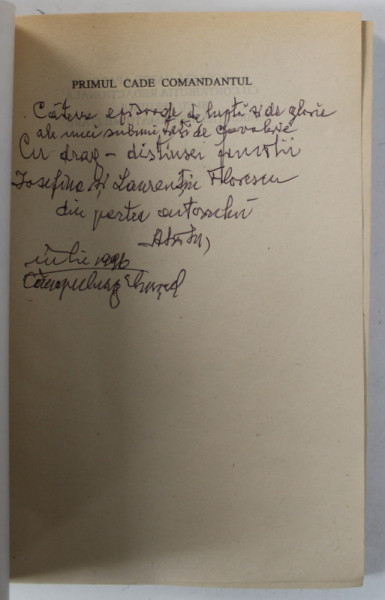 PRIMUL CADE COMANDANTUL
Câteva episoade de luptă și de glorie
ale unei subunități de cavalerie
Cu drag – distinsei familii
Iosefina și Laurenţiu Florescu
din partea autorului
iulie 1996
Câmpulung Muscel